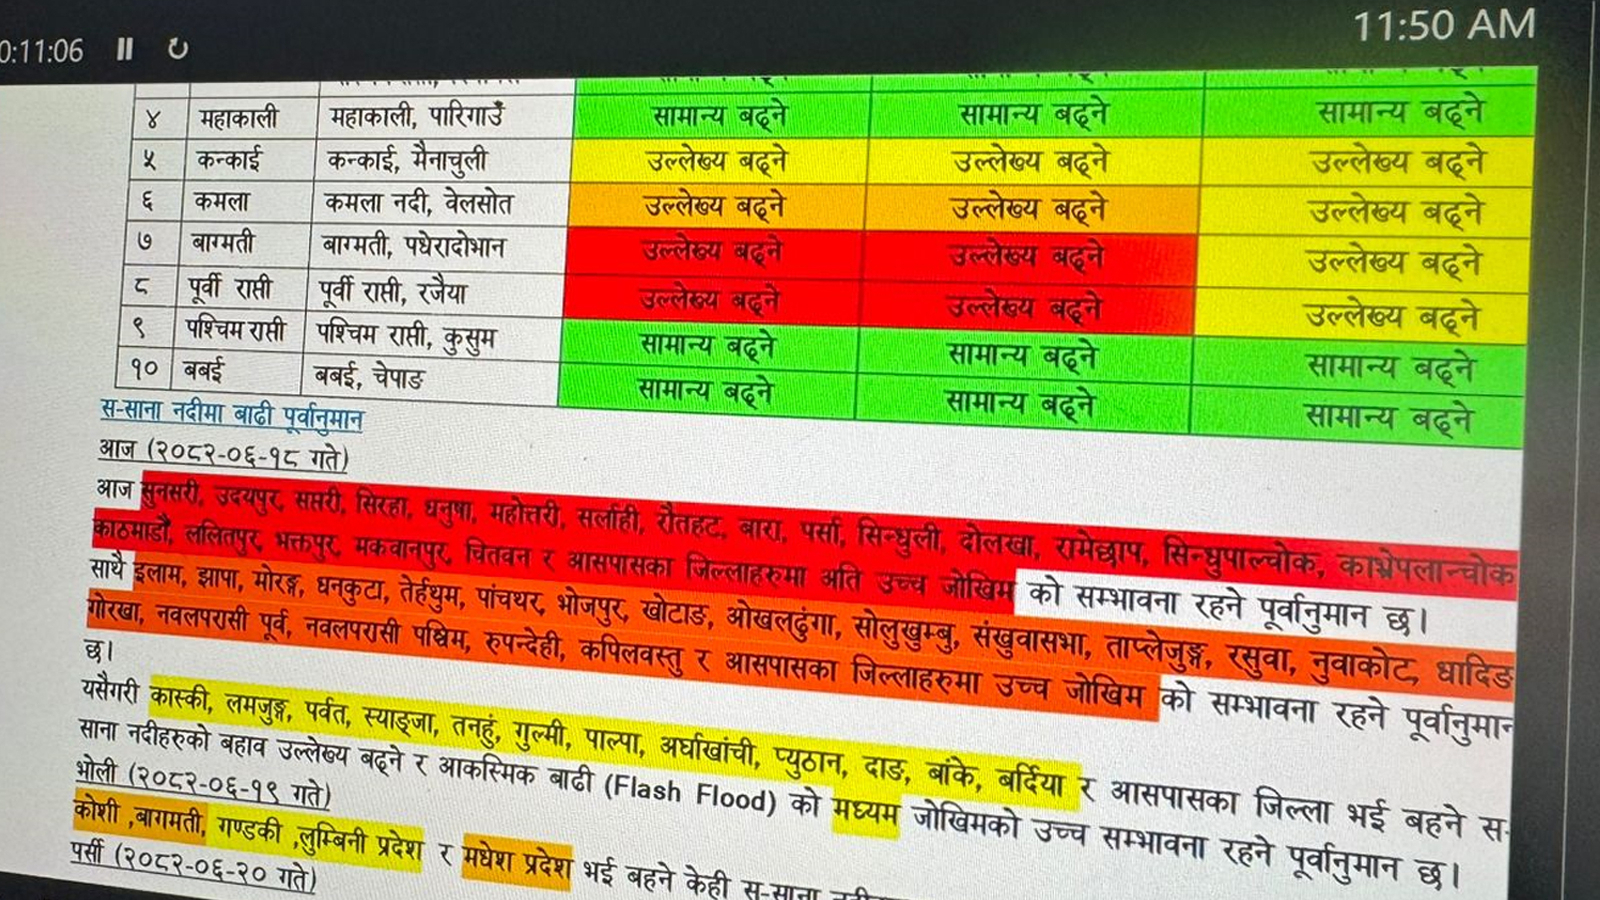 0:11:06
11:50 AM
४ महाकाली महाकाली, पारिगाउँ सामान्य बढ्ने सामान्य बढ्ने सामान्य बढ्ने
५ कन्काई कन्काई, मैनाचुली उल्लेख्य बढ्ने उल्लेख्य बढ्ने उल्लेख्य बढ्ने
६ कमला कमला नदी, वेलसोत उल्लेख्य बढ्ने उल्लेख्य बढ्ने उल्लेख्य बढ्ने
७ बाग्मती बाग्मती, पधेरादोभान उल्लेख्य बढ्ने उल्लेख्य बढ्ने उल्लेख्य बढ्ने
८ पूर्वी राप्ती पूर्वी राप्ती, रजैया उल्लेख्य बढ्ने उल्लेख्य बढ्ने उल्लेख्य बढ्ने
९ पश्चिम राप्ती पश्चिम राप्ती, कुसुम सामान्य बढ्ने सामान्य बढ्ने सामान्य बढ्ने
१० बबई बबई, चेपाङ सामान्य बढ्ने सामान्य बढ्ने सामान्य बढ्ने
स-साना नदीमा बाढी पूर्वानुमान
आज (२०८२-०६-१८ गते)
आज सुनसरी, उदयपुर, सप्तरी, सिरहा, धनुषा, महोत्तरी, सर्लाही, रौतहट, बारा, पर्सा, सिन्धुली, दोलखा, रामेछाप, सिन्धुपाल्चोक, काभ्रेपलान्चोक
काठमाडौं, ललितपुर, भक्तपुर, मकवानपुर, चितवन र आसपासका जिल्लाहरुमा अति उच्च जोखिम को सम्भावना रहने पूर्वानुमान छ।
साथै इलाम, झापा, मोरङ्ग, धनकुटा, तेर्हथुम, पांचथर, भोजपुर, खोटाङ, ओखलढुंगा, सोलुखुम्बु, संखुवासभा, ताप्लेजुङ्ग, रसुवा, नुवाकोट, धादिङ
गोरखा, नवलपरासी पूर्व, नवलपरासी पश्चिम, रुपन्देही, कपिलवस्तु र आसपासका जिल्लाहरुमा उच्च जोखिम को सम्भावना रहने पूर्वानुमान
छ।
यसैगरी कास्की, लमजुङ्ग, पर्वत, स्याङ्जा, तनहुं, गुल्मी, पाल्पा, अर्घाखांची, प्युठान, दाङ, बांके, बर्दिया र आसपासका जिल्ला भई बहने स-
साना नदीहरुको बहाव उल्लेख्य बढ्ने र आकस्मिक बाढी (Flash Flood) को मध्यम जोखिमको उच्च सम्भावना रहने पूर्वानुमान छ।
भोली (२०८२-०६-१९ गते)
कोशी ,बागमती, गण्डकी ,लुम्बिनी प्रदेश र मधेश प्रदेश भई बहने केही स-साना
पर्सी (२०८२-०६-२० गते)